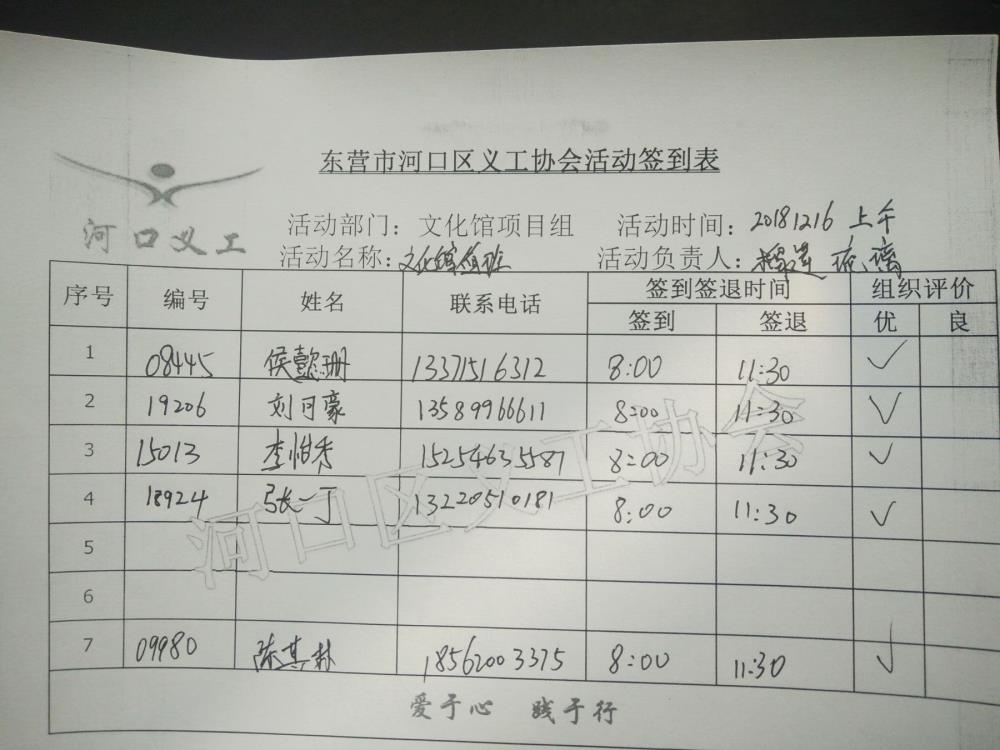 东营市河口区义工协会活动签到表
河口义工
活动部门：文化馆项目组 活动时间：20181216 上午
活动名称：文化馆值班 活动负责人：琉璃
序号 编号 姓名 联系电话 签到签退时间 组织评价
签到 签退 优 良
1 08445 侯懿珊 13371516312 8:00 11:30 ✓
2 19206 刘可豪 13589966611 8:00 11:30 ✓
3 15013 李怡秀 15254635587 8:00 11:30 ✓
4 18924 张一丁 13220510181 8:00 11:30 ✓
5
6
7 09980 陈其林 18562003375 8:00 11:30 ✓
河口区义工协会
爱于心 践于行